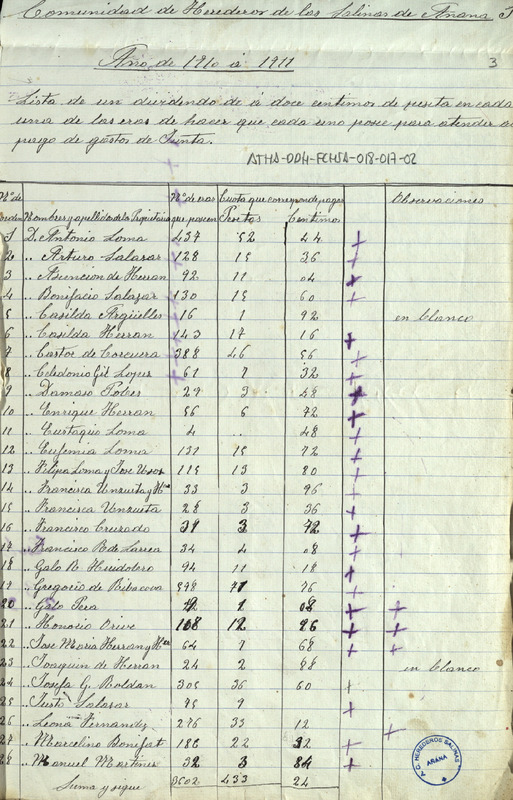 Comunidad de Herederos de las Salinas de Añana
3
Año de 1910 á 1911
Lista de un dividendo de á doce centimos de peseta en cada
una de las eras de hacer que cada uno posee para atender al
pago de gastos de Junta.
ATHA-DDH-FCHSA-018-017-02
Nº de orden Nombres y apellidos de los Propietarios Nº de eras que poseen Cuota que corresponde pagar Pesetas Centimos Observaciones
1 D. Antonio Loma 437 52 44 +
2 .. Arturo Salazar 128 15 36 +
3 .. Asuncion de Herran 92 11 04 +
4 .. Bonifacio Salazar 130 15 60 +
5 .. Casilda Argüelles 16 1 92 en blanco
6 .. Casilda Herran 143 17 16 +
7 .. Castor de Corcuera 388 46 56 +
8 .. Celedonio Gil 61 7 32 +
9 .. Damaso Pobes 29 3 48 +
10 .. Enrique Herran 56 6 72 +
11 .. Eustaquio Loma 4 .. 48 +
12 .. Eufemia Loma 131 15 72 +
13 .. Felipa Loma y Jose 115 13 80 +
14 .. Francisca Unzueta y Hna 33 3 96 +
15 .. Francisca Unzueta 28 3 36 +
16 .. Francisco Cruzado 31 3 72 +
17 .. Francisco R. de Larrea 34 4 08 +
18 .. Galo N. Huidobro 94 11 28 +
19 .. Gregorio de Bibacova 598 71 76 +
20 .. Galo Pera 1 08 + +
21 .. Honorio Orive 108 12 96 + +
22 .. Jose Maria Herran y Hna 64 7 68 + +
23 .. Joaquin de Herran 24 2 88 en blanco
24 .. Josefa G. Roldan 305 36 60 +
25 .. Justo Salazar 75 9 +
26 .. Leona Fernandez 276 33 12 +
27 .. Marcelino Bonifat 186 22 32 +
28 .. Manuel Martinez 32 3 84 +
Suma y sigue 3602 433 24
A.C. HEREDEROS SALINAS
AÑANA